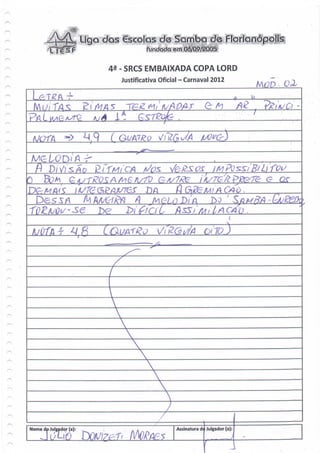 Liga das Escolas de Samba de Florianópolis
LIESF
fundada em 06/09/2005
4ª - SRCS EMBAIXADA COPA LORD
Justificativa Oficial – Carnaval 2012
MOD. 02
LETRA ÷
MUITAS RIMAS TERMINADAS EM AR, PRINCI-
PALMENTE NA 1ª ESTROFE.
NOTA => 4,9 (QUATRO VIRGULA NOVE)
MELODIA ÷
A DIVISÃO RITMICA NOS VERSOS IMPOSSIBILITOU
O BOM ENTROSAMENTO ENTRE INTERPRETE E OS
DEMAIS INTEGRANTES DA AGREMIAÇÃO.
DESSA MANEIRA A MELODIA DO SAMBA-ENREDO
TORNOU-SE DE DIFICIL ASSIMILAÇÃO.
NOTA ÷ 4,8 (QUATRO VIRGULA OITO)
Nome do Julgador (a): Assinatura do Julgador (a):
JÚLIO DONIZETI MORAES